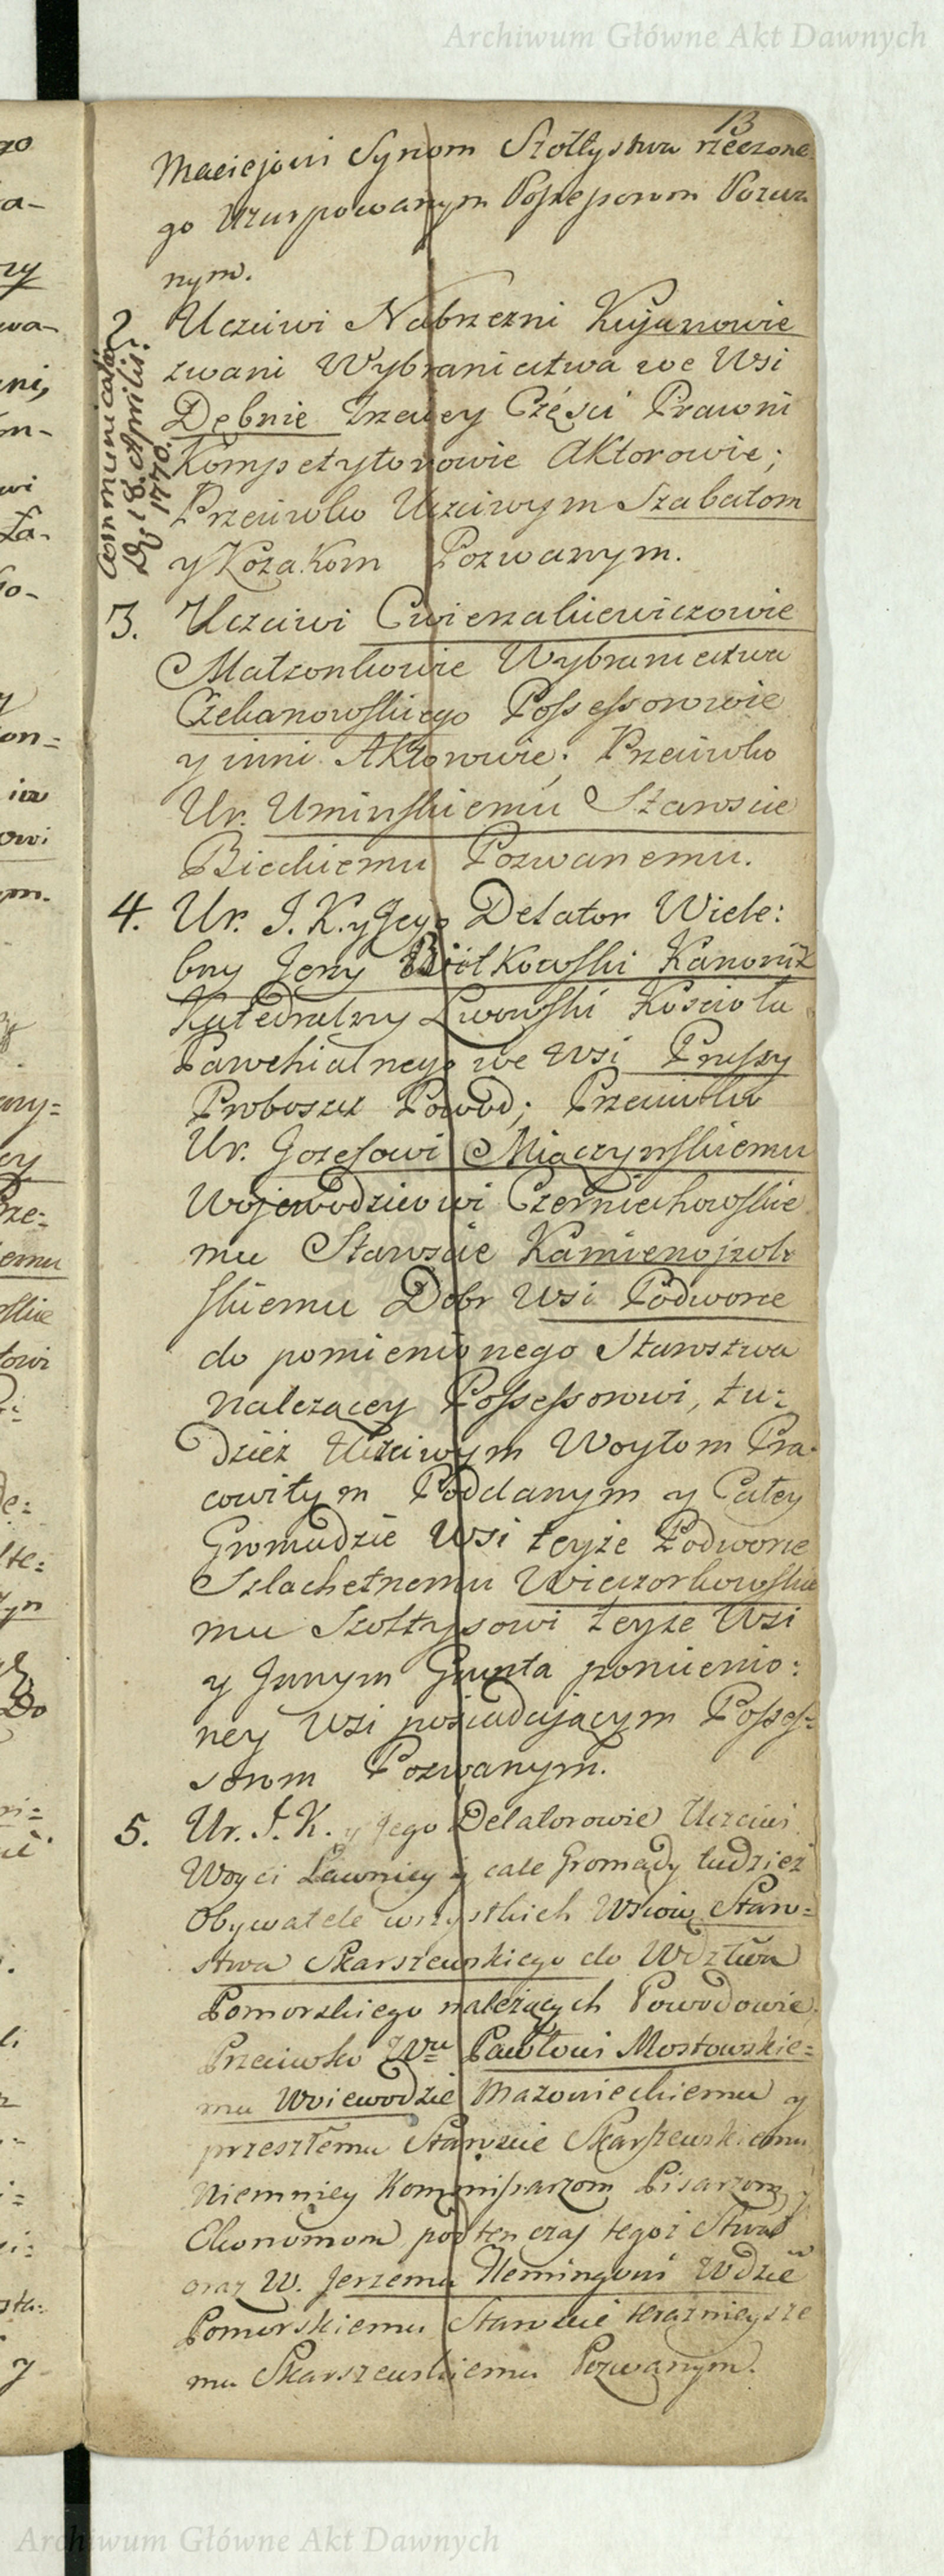 Archiwum Główne Akt Dawnych
13
Maciejowi Synom Szołtystwa rzeczone
go Uzurpowanym Possessorom Pozwa
nym.
communicata
D. 18. Aprilis
1770.
2
Uczciwi Nabrzezni Kujanowie
zwani Wybraniectwa we Wsi
Dębnie trzeciey Częsci Prawni
Kompetytorowie Aktorowie;
Przeciwko Uczciwym Szabatom
y Kozakom Pozwanym.
3. Uczciwi Cwierzakiewiczowie
Małzonkowie Wybraniectwa
Czekanowskiego Possessorowie
y inni Aktorowie; Przeciwko
Ur. Uminskiemu Staroscie
Bieckiemu Pozwanemu.
4. Ur. I. K. y Jego Delator Wiele:
bny Jerzy Białkowski Kanonik
Katedralny Lwowski Koscioła
Parochialnego we Wsi Prussy
Proboszcz Powod; Przeciwko
Ur. Jozefowi Miączynskiemu
Wojewodzicowi Czerniechowskie
mu Staroscie Kamienojzol
skiemu Dobr Wsi Podworce
do pomienionego Starostwa
nalezącey Possessorowi, tu:
dzież Uczciwym Woytom Pra
cowitym Poddanym y Całey
Gromadzie Wsi teyże Podworce
Szlachetnemu Wieczorkowskie
mu Szołtysowi teyże Wsi
y Innym Grunta pomienio:
ney Wsi posiadającym Posses:
sorom Pozwanym.
5. Ur. I. K. y Jego Delatorowie Uczciwi
Woyci Ławnicy y całe Gromady tudziez
Obywatele wszystkich Wsiow Staro:
stwa Skarszewskiego do Wdztwa
Pomorskiego należących Powodowie
Przeciwko Wu Pawłowi Mostowskie:
mu Woiewodzie Mazowieckiemu y
przeszłemu Staroscie Skarszewskiemu
Niemniey Kommissarzom Pisarzom y
Ekonomom podten czas tegoż Stwa
oraz W. Jerzemu Flemingowi Wdzie
Pomorskiemu Staroscie teraznieysze
mu Skarszewskiemu Pozwanym.
Archiwum Główne Akt Dawnych